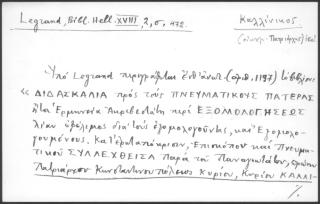 Legrand, Bibl. Hell. XVIII, 2, σ. 472.
Καλλίνικος.
Ὑπὸ Legrand περιγράφεται (ἀριθ. 1197)
« ΔΙΔΑΣΚΑΛΙΑ πρὸς τοὺς ΠΝΕΥΜΑΤΙΚΟΥΣ ΠΑΤΕΡΑΣ
ἤτοι Ἑρμηνεία Ἀκριβεστάτη περὶ ΕΞΟΜΟΛΟΓΗΣΕΩΣ
λίαν ὠφέλιμος διὰ τοὺς ἐξομολογοῦντας, καὶ Ἐξομολο-
γουμένους. Κατ' ἐρωταπόκρισιν, Ἐπισκόπου καὶ Πνευμα-
τικοῦ ΣΥΛΛΕΧΘΕΙΣΑ παρὰ τοῦ Παναγιωτάτου, πρώην
Πατριάρχου Κωνσταντινουπόλεως Κυρίου, Κυρίου ΚΑΛΛΙ-